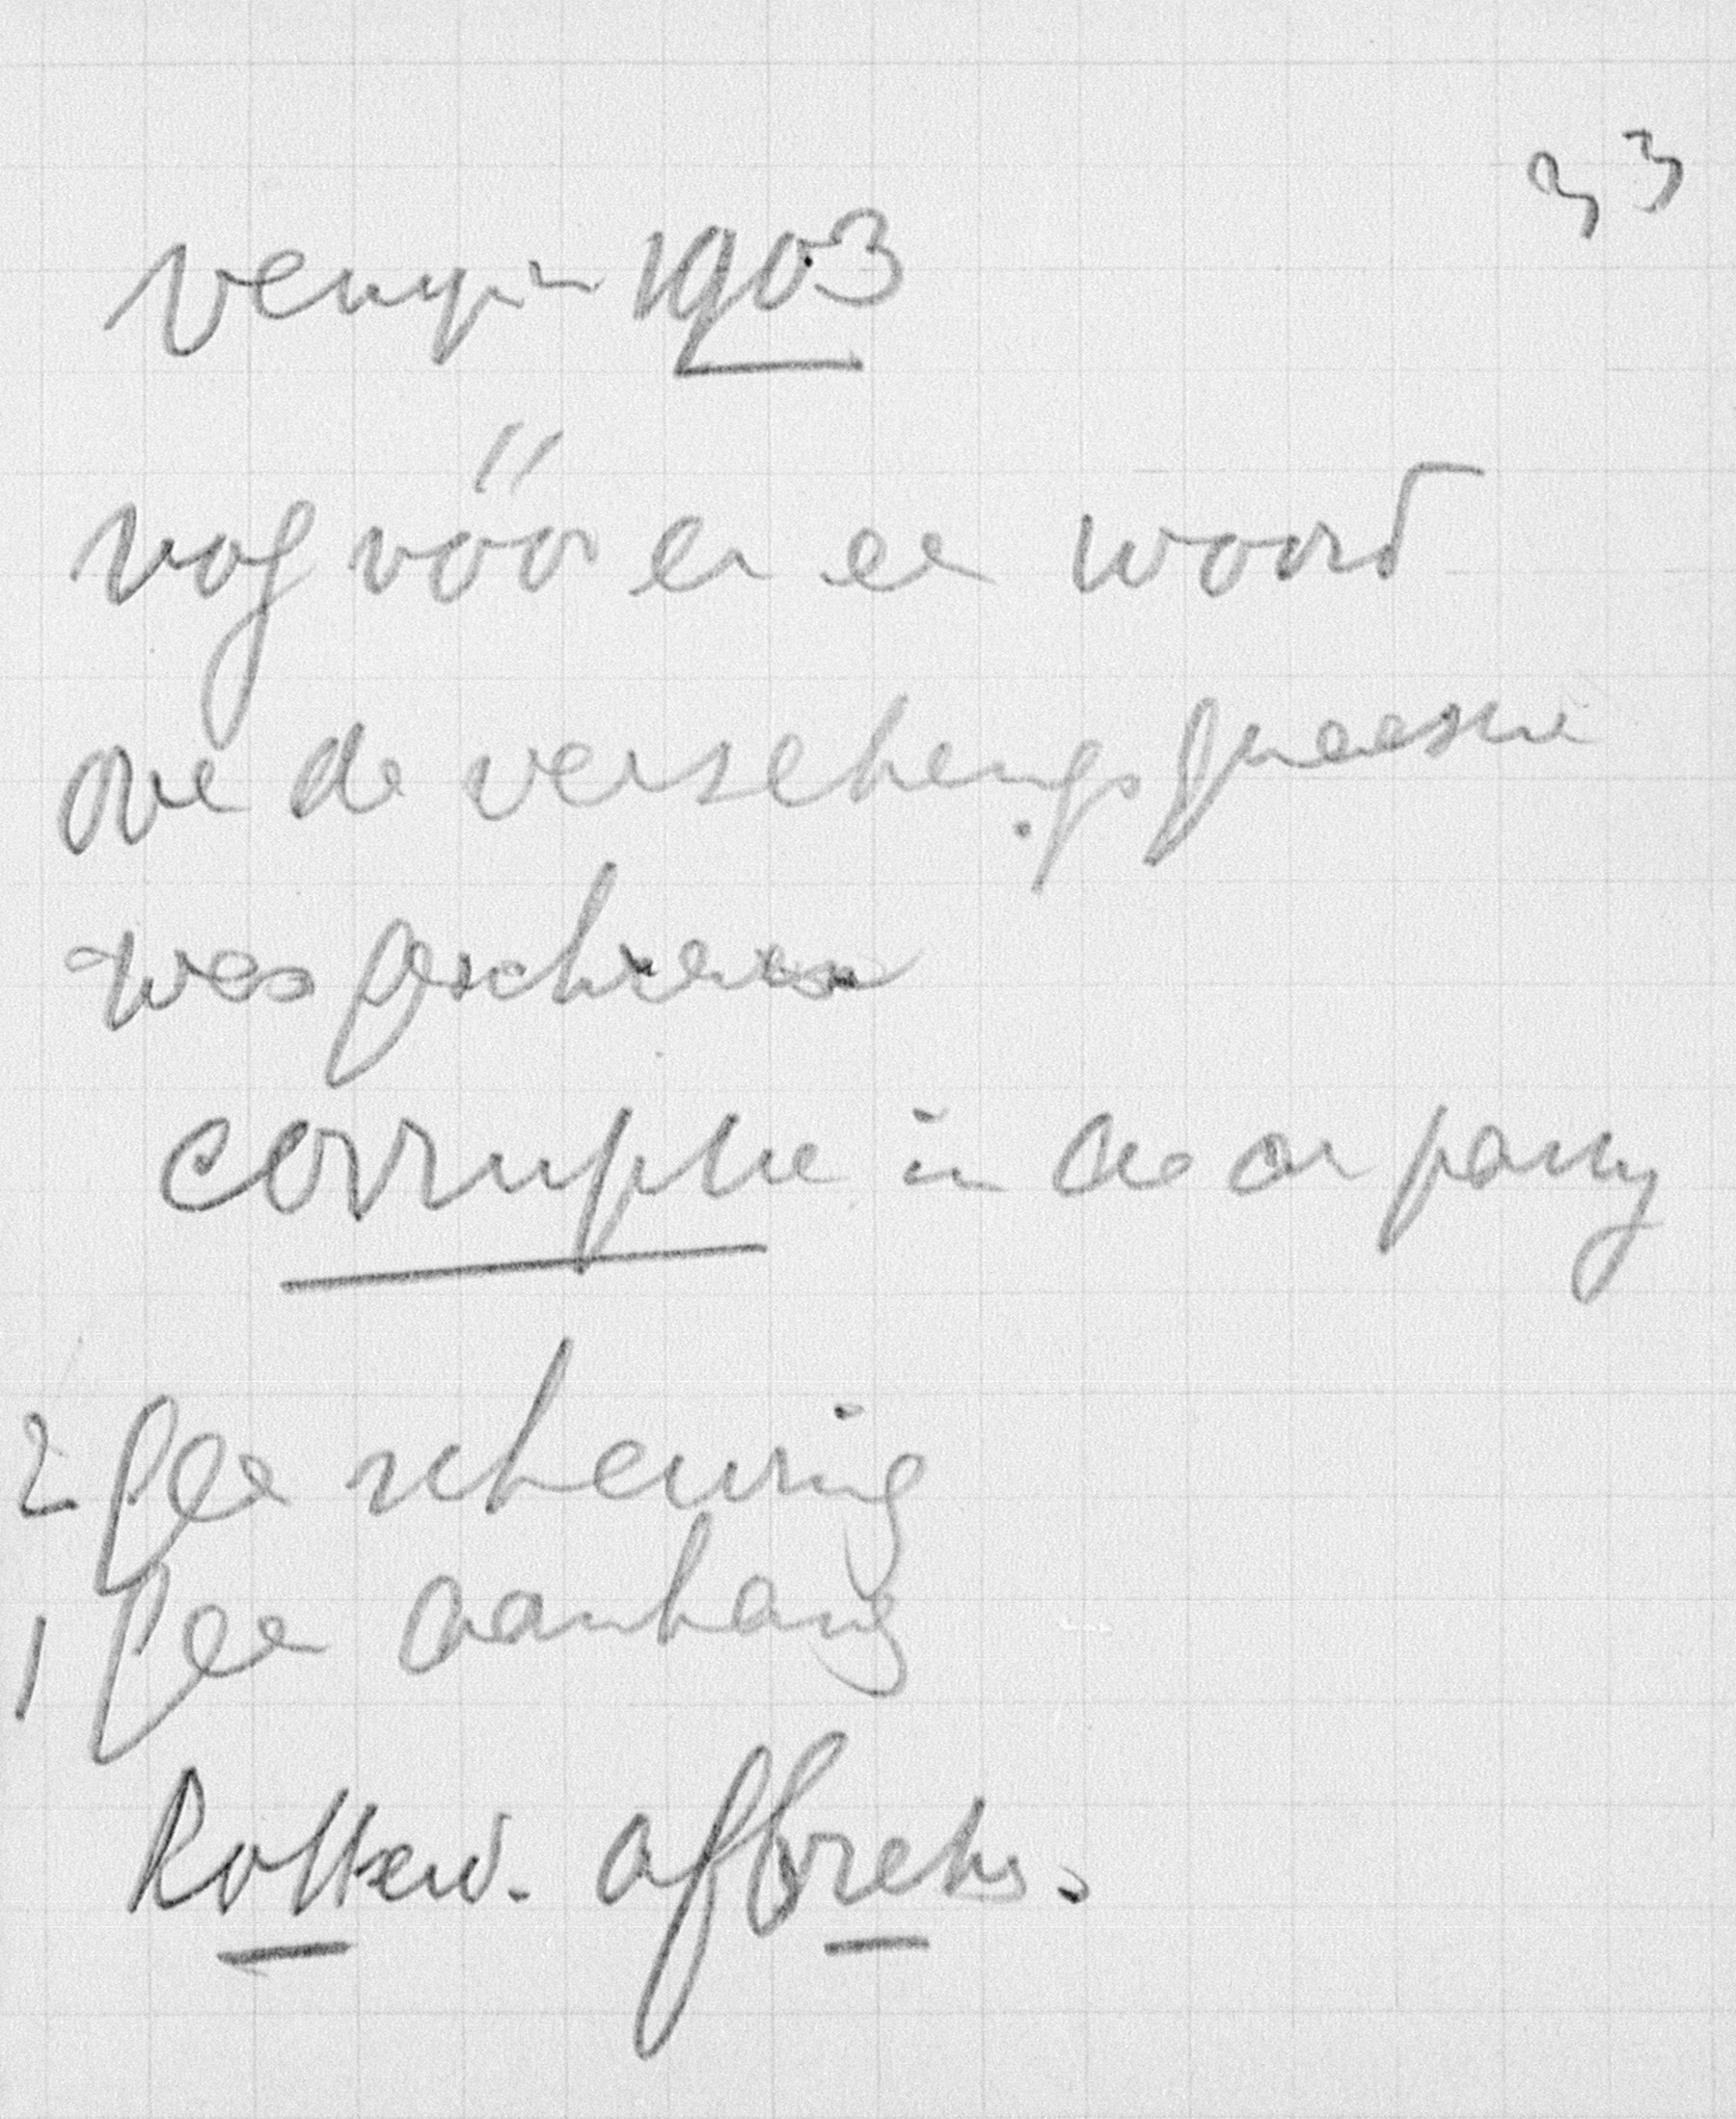 33
venijn 1903
nog vóór er een woord
over de verschenings quaestie
was geschreven
corruptie in de ar party
2 geen scheuring
1 geen aanhang
Rotterd. afbrekr.